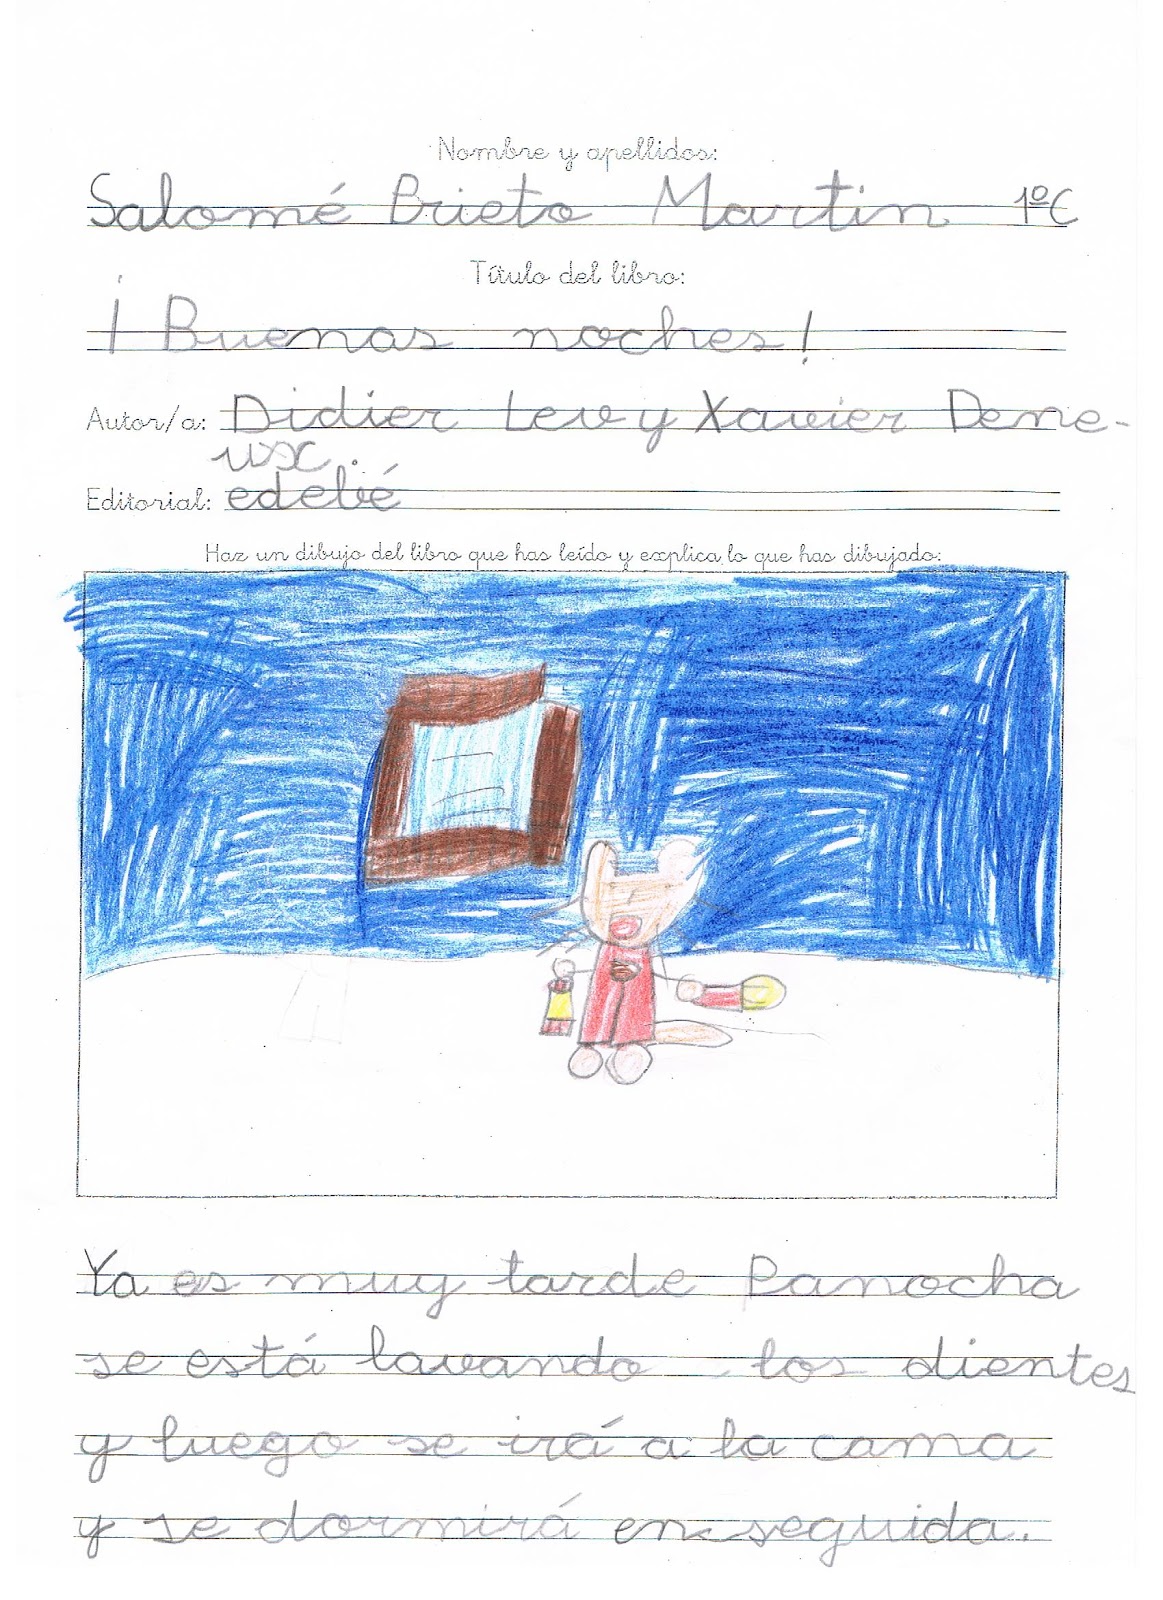 Nombre y apellidos:
Salomé Prieto Martin 1ºC
Título del libro:
¡Buenas noches!
Autor/a: Didier Levy Xavier Dene-
ux.
Editorial: edebé
Haz un dibujo del libro que has leído y explica lo que has dibujado:
Ya es muy tarde Panocha
se está lavando los dientes
y luego se irá a la cama
y se dormirá en seguida.